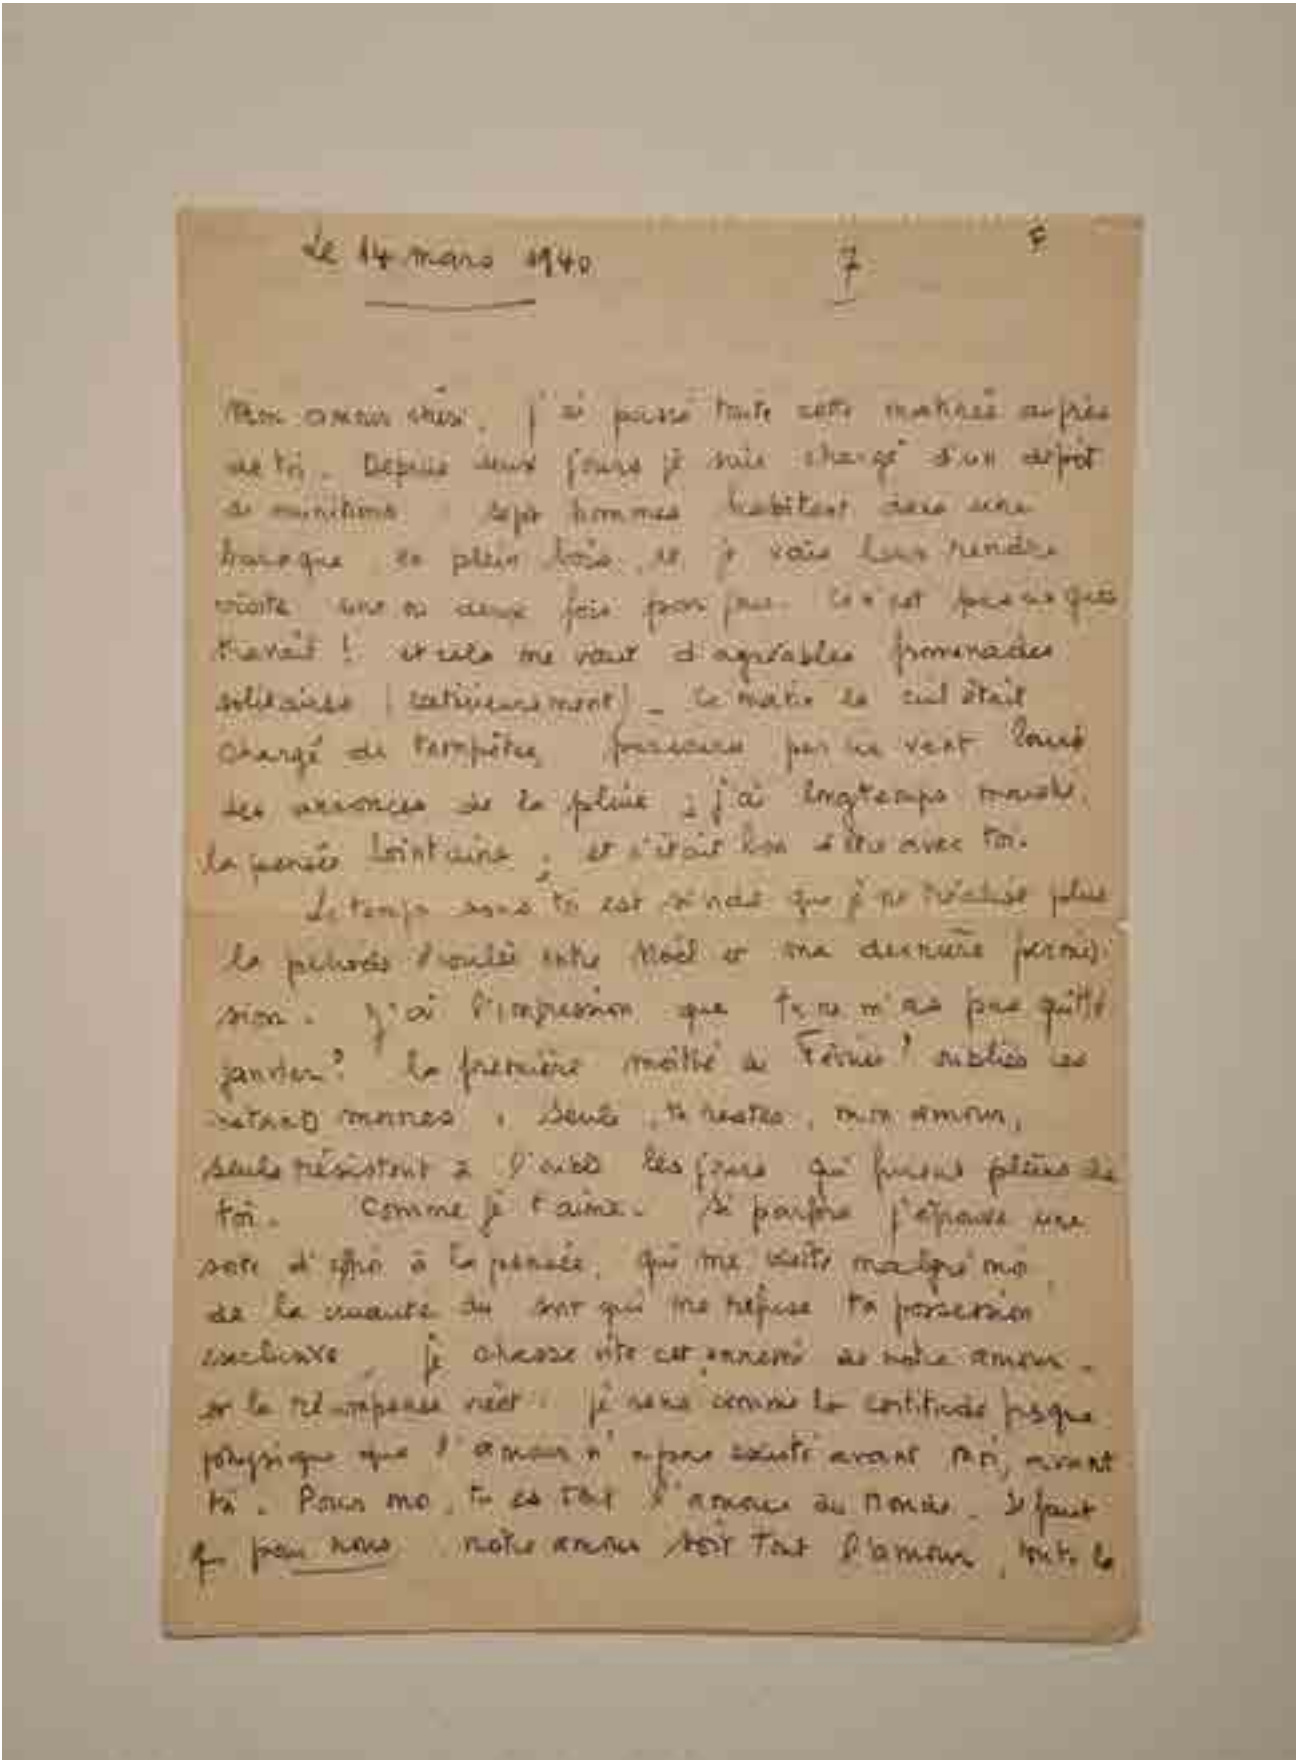 Le 14 mars 1940 7 F
Mon amour chéri. J'ai passé toute cette matinée auprès
de toi. Depuis deux jours je suis chargé d'un dépôt
de munitions : sept hommes habitent dans une
baraque en plein bois, et je vais leur rendre
visite une ou deux fois par jour. Ce n'est pas un gros
travail ! et cela me vaut d'agréables promenades
solitaires (intérieurement) _ Ce matin le ciel était
chargé de tempêtes, parcouru par un vent lourd
des annonces de la pluie ; j'ai longtemps marché,
la pensée lointaine ; et c'était bon d'être avec toi.
Le temps sans toi est si nul que je ne réalise plus
la période écoulée entre Noël et ma dernière permis-
sion. J'ai l'impression que tu ne m'as pas quitté.
janvier ? la première moitié de Février ? oubliés ces
mornes. Seule, tu restes, mon amour,
seuls résistent à l'oubli les jours qui furent pleins de
toi. Comme je t'aime. Si parfois j'éprouve une
sorte d'effroi à la pensée, qui me visite malgré moi,
de la cruauté du sort qui me refuse ta possession
exclusive, je chasse vite cet ennemi de notre amour _
et la récompense naît : je sens comme la certitude presque
physique que l'amour n'a pas existé avant moi, avant
toi. Pour moi, tu es tout l'amour du monde. Il faut
que pour nous notre amour soit tout l'amour, toute la